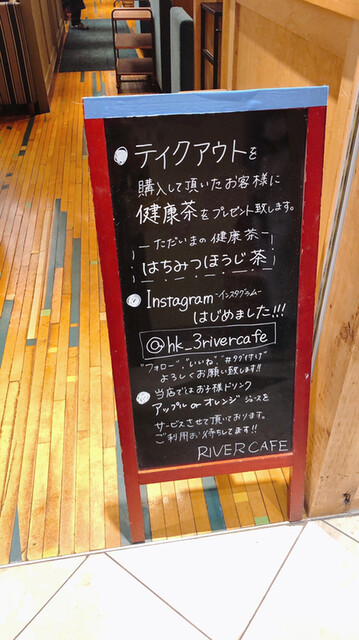 テイクアウトを
購入して頂いたお客様に
健康茶をプレゼント致します。
ーただいまの健康茶ー
はちみつほうじ茶
Instagram-インスタグラム-
はじめました!!!
@hk_3rivercafe
"フォロー","いいね","#タグ付け"
よろしくお願い致します!!
当店ではお子様ドリンク
アップル or オレンジ ジュースを
サービスさせて頂いております。
ご利用お待ちしてます!!
RIVER CAFE